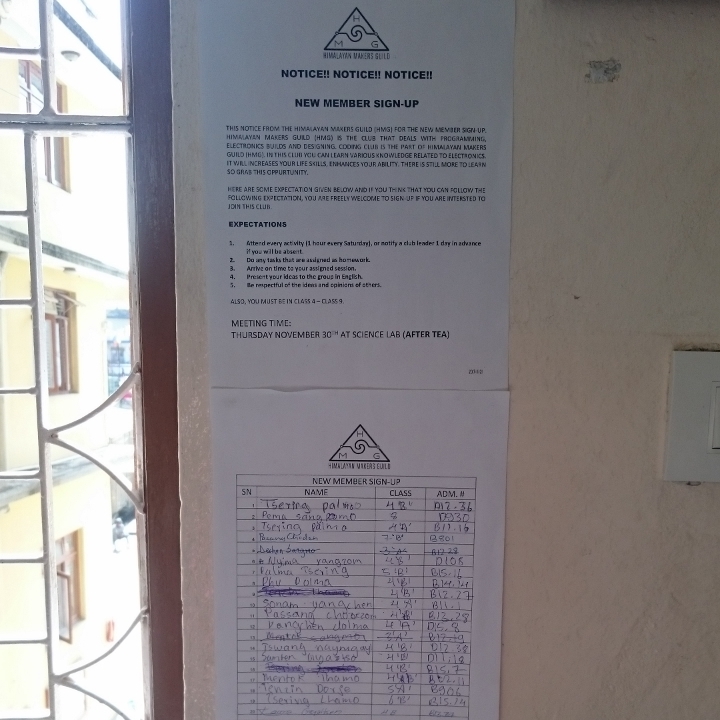 H
M G
HIMALAYAN MAKERS GUILD
NOTICE!! NOTICE!! NOTICE!!
NEW MEMBER SIGN-UP
THIS NOTICE FROM THE HIMALAYAN MAKERS GUILD (HMG) FOR THE NEW MEMBER SIGN-UP.
HIMALAYAN MAKERS GUILD (HMG) IS THE CLUB THAT DEALS WITH PROGRAMMING,
ELECTRONICS BUILDS AND DESIGNING. CODING CLUB IS THE PART OF HIMALAYAN MAKERS
GUILD (HMG). IN THIS CLUB YOU CAN LEARN VARIOUS KNOWLEDGE RELATED TO ELECTRONICS.
IT WILL INCREASES YOUR LIFE SKILLS, ENHANCES YOUR ABILITY. THERE IS STILL MORE TO LEARN
SO GRAB THIS OPPURTUNITY.
HERE ARE SOME EXPECTATION GIVEN BELOW AND IF YOU THINK THAT YOU CAN FOLLOW THE
FOLLOWING EXPECTATION, YOU ARE FREELY WELCOME TO SIGN-UP IF YOU ARE INTERSTED TO
JOIN THIS CLUB.
EXPECTATIONS
1. Attend every activity (1 hour every Saturday), or notify a club leader 1 day in advance
if you will be absent.
2. Do any tasks that are assigned as homework.
3. Arrive on time to your assigned session.
4. Present your ideas to the group in English.
5. Be respectful of the ideas and opinions of others.
ALSO, YOU MUST BE IN CLASS 4 – CLASS 9.
MEETING TIME:
THURSDAY NOVEMBER 30TH AT SCIENCE LAB (AFTER TEA)
H
M G
HIMALAYAN MAKERS GUILD
NEW MEMBER SIGN-UP
SN NAME CLASS ADM. #
1 Tsering palmo 4'B' D12.36
2 Pema 8 D930
3 Tsering palma 4'A' B11.16
4 7'B' B801
5
6 Nyima yangzom 4'B' D105
7 Palma Tsering 5'B' B15.16
8 Phu Dolma 4'B'
9 4'B' B12.27
10 Sonam yangchen B11.1
11 Passang B12.28
12 dolma 4'A' D15.8
13
14 Tswang 4'B' D12.38
15 4'B' D11.18
16 4'B' B15.7
17 Mentok lhamo
18 Tenzin Dorje 5'A' B906
19 Tsering lhamo 6'B' B15.14